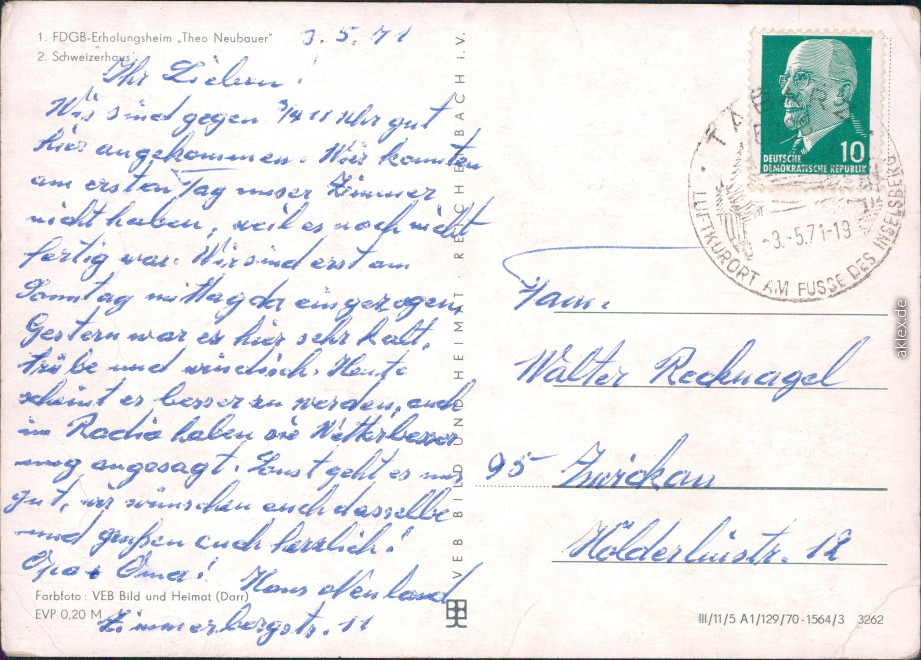 1. FDGB-Erholungsheim „Theo Neubauer"
2. Schweizerhaus
3.5.71
Ihr Lieben!
Wir sind gegen 3/4 11 Uhr gut
hier angekommen. Wir konnten
am ersten Tag unser Zimmer
nicht haben, weil es noch nicht
fertig war. Wir sind erst am
Sonntag mittag da eingezogen.
Gestern war es hier sehr kalt,
trübe und windisch. Heute
scheint es besser zu werden, auch
im Radio haben sie Wetterbesser
ung angesagt. Sonst geht es uns
gut, wir wünschen euch dasselbe
und grüßen euch herzlich!
Opa & Oma!
Haus
Zimmerbergstr. 11
Farbfoto: VEB Bild und Heimat (Darr)
EVP 0,20 M
VEB BILD UND HEIMAT · REICHENBACH i. V.
DEUTSCHE
DEMOKRATISCHE REPUBLIK
10
LUFTKURORT AM FUSSE DES INSELSBERG
-3.-5.71-19
Fam.
Walter Recknagel
95 Zwickau
Hölderlinstr. 12
III/11/5 A1/129/70-1564/3 3262
aklex.de